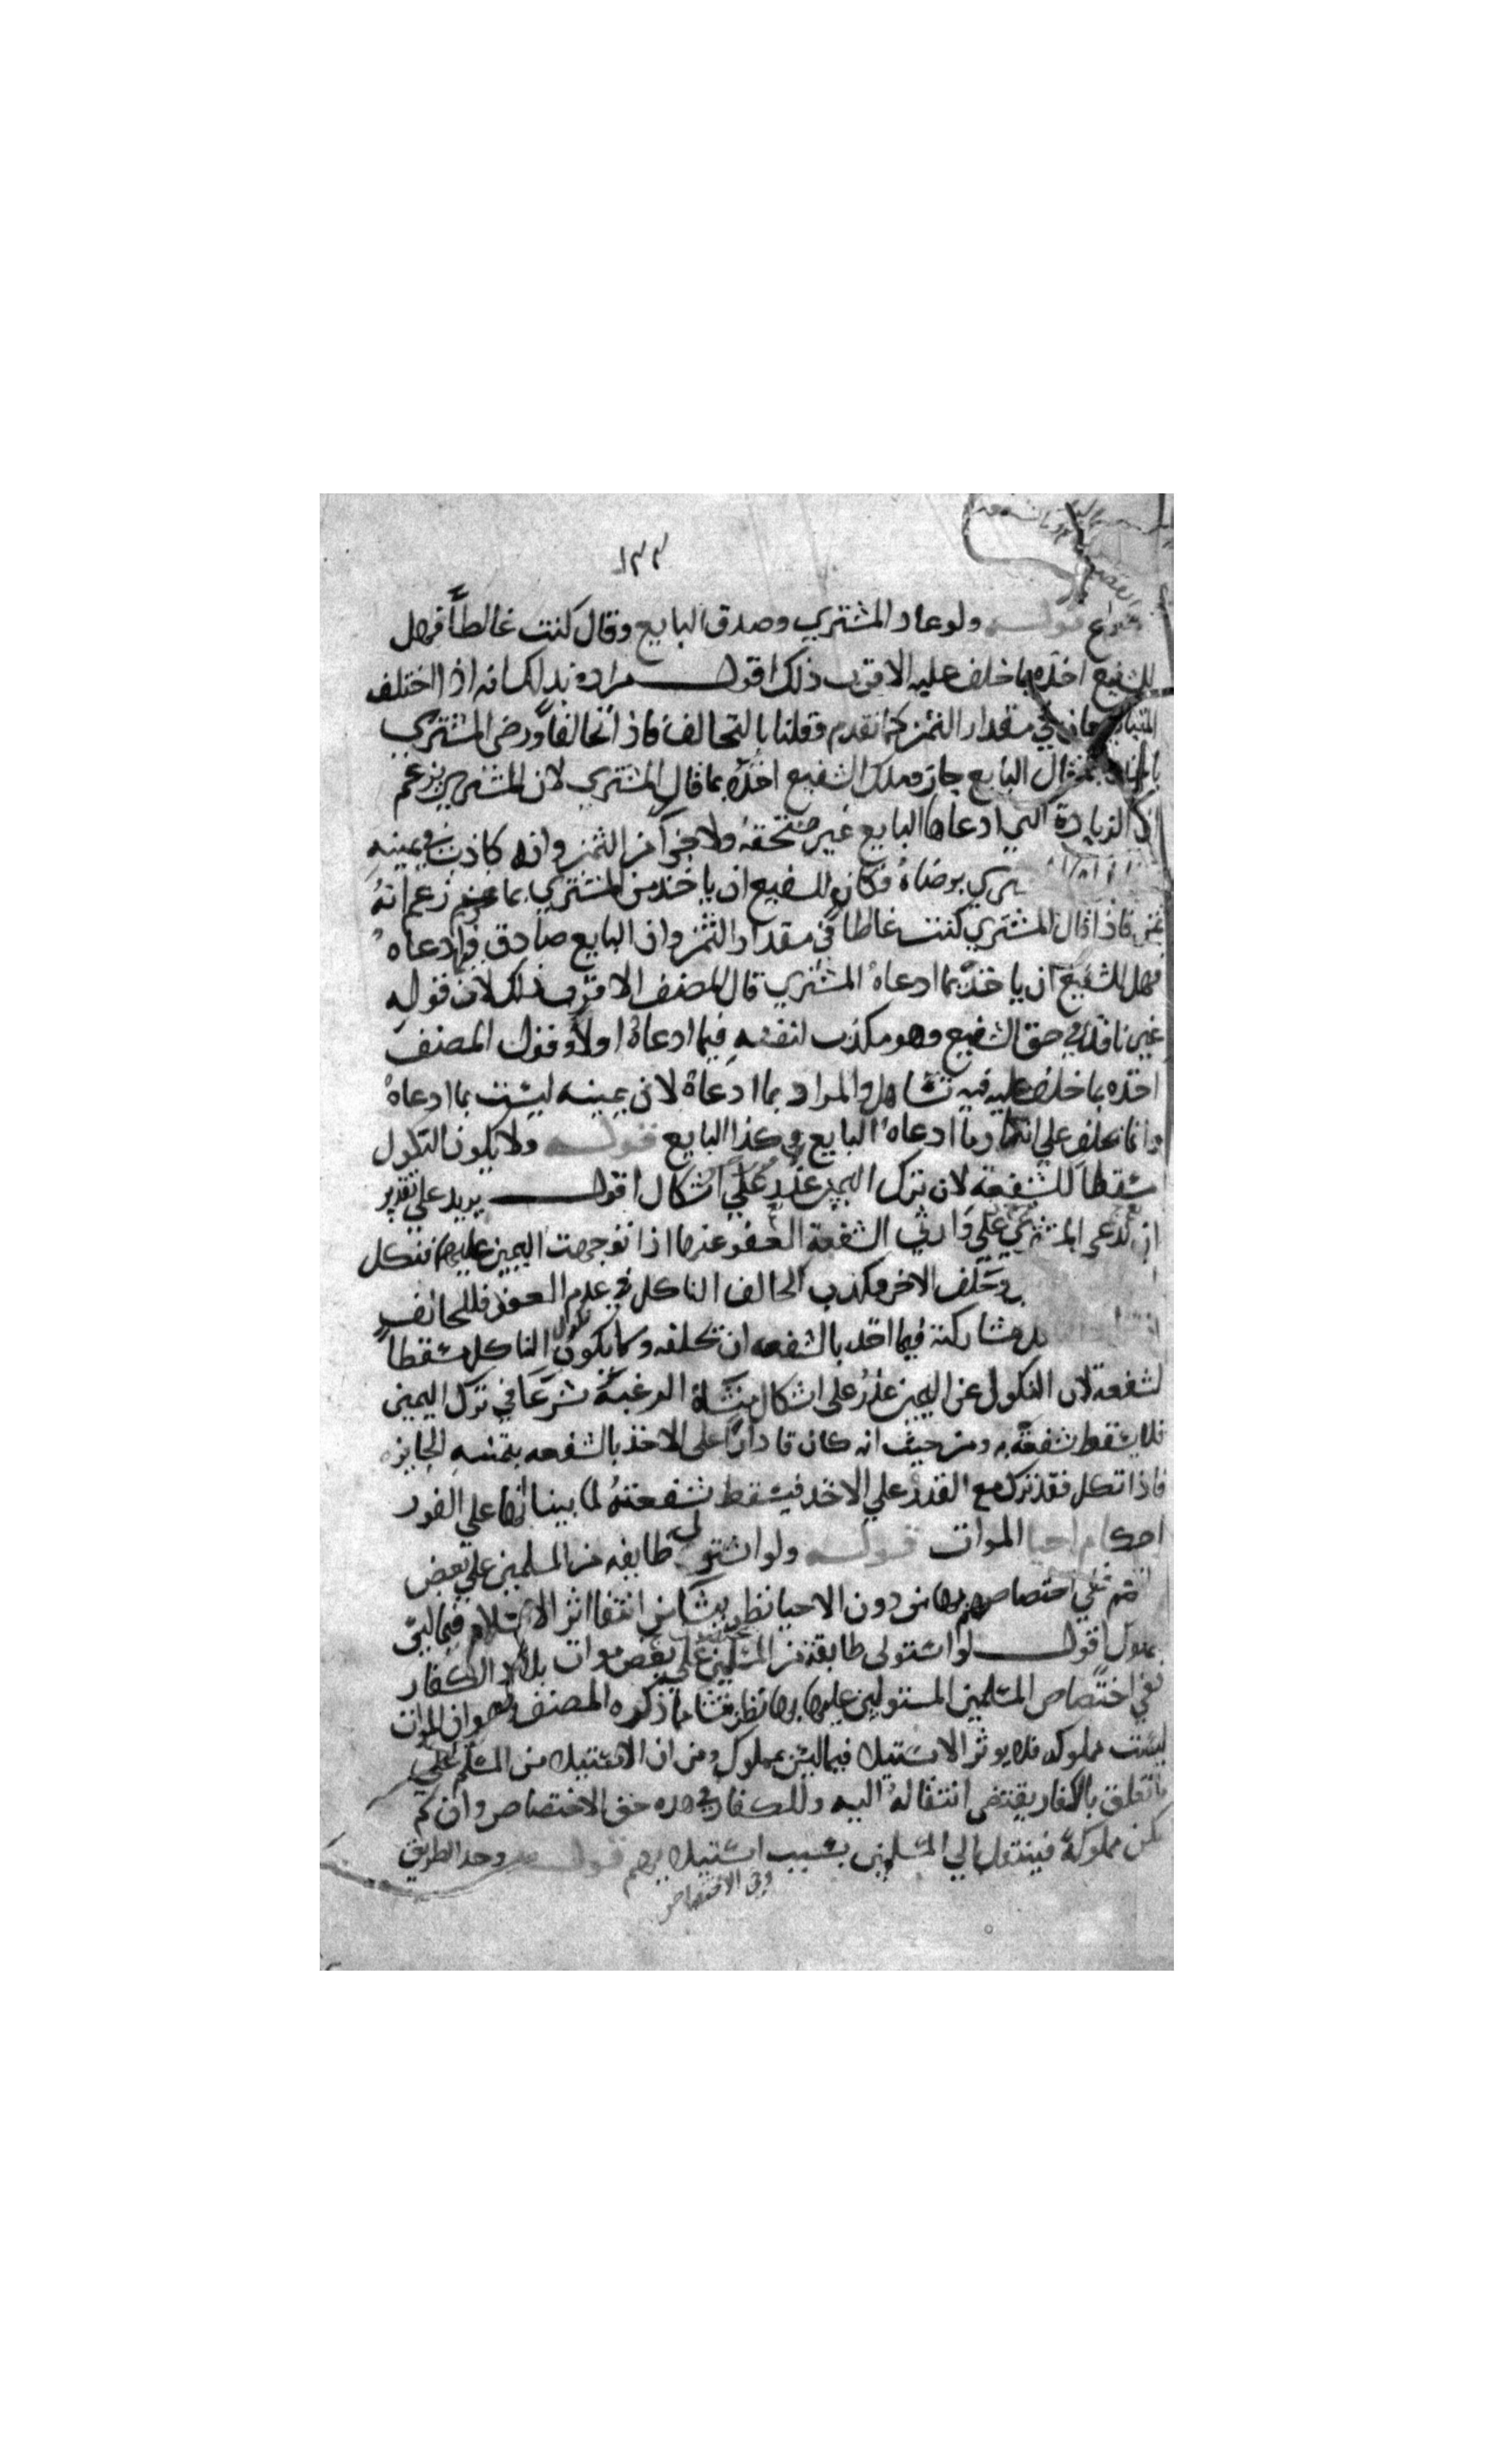 ١٣٣
قوله ولو عاد المشتري وصدق البايع وقال كنت غالطاً فهل
للشفيع اخذه بما خلف عليه الاقرب ذلك اقول مراده بذلك انه اذا اختلف
في مقدار الثمن كما تقدم وقلنا بالتحالف فاذا تحالفا ورضى المشتري
قال البايع جاز وملك الشفيع اخذه بما قال المشتري لان المشتري يزعم
ان الزيادة التي ادعاها البايع غير مستحقه ولا جزأ من الثمن وانه كاذب في يمينه
برضاهُ فكان للشفيع ان ياخذ من المشتري بما زعم انهُ
ثمن فاذا قال المشتري كنت غالطا في مقدار الثمن وان البايع صادق فيما ادعاهُ
فهل للشفيع ان ياخذ بما ادعاهُ المشتري قال المصنف الاقرب ذلك لان قوله
غير نافذ في حق الشفيع وهو مكذب لنفسه فيما ادعاهُ اولاً وقول المصنف
اخذه بما خلف عليه فيه تساهل والمراد بما ادعاهُ لان يمينه ليست بما ادعاهُ
وانما يحلف على انكار ما ادعاه البايع وكذا البايع قوله ولا يكون النكول
مسقطا للشفعة لان ترك اليمين عذر على اشكال اقول يريد على تقدير
ان يدعي المشتري على وارثي الشفعة العفو عنها اذا توجهت اليمين عليهما فنكل
وحلف الاخر وكذب الحالف الناكل في عدم العفو فللحالف
مشاركته فيما اخذ بالشفعه ان تحلفه ولا يكون نكول الناكل مسقطا
لشفعة لان النكول عن اليمين عذرُ على اشكال منشاة الرغبة شرعا في ترك اليمين
فلا يسقط شفعته به ومن حيث انه كان قادرا على الاخذ بالشفعه بيمينه الجايزه
فاذا نكل فقد ترك مع القدرة على الاخذ فيسقط شفعتهُ لما بينا انها على الفور
احكام احيا الموات قوله ولو استولى طايفه من المسلمين على بعض
ففي اختصاصهم بها من دون الاحيا نظر ينشا من انتفا اثر الاستيلاء فيما ليس
بمملوك اقول لو استولى طايفة من المسلمين على بعض موات بلاد الكفار
ففي اختصاص المسلمين المستولين عليها بها نظر منشا ما ذكره المصنف وهو ان الموات
ليست مملوكه فلا يوثر الاستيلا فيما ليس بمملوك ومن ان الاستيلا من المسلم على
ما تعلق بالكفار يقتضي انتقاله اليه وللكفار في هده حق الاختصاص وان لم
تكن مملوكة فينتقل الي المسلمين بسبب استيلايهم قوله وحد الطريق
وفي الاختصاص